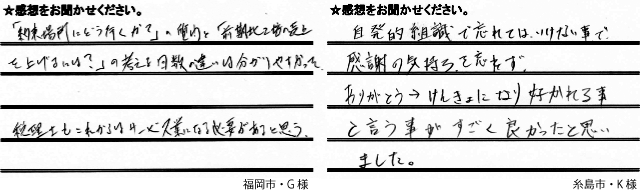 ★感想をお聞かせください。
「約束場所にどう行くか?」の質問と「前期比二倍の売上
を上げるには?」の考える回数の違いは分かりやすかった
税理士もこれからはサービス業になる必要があると思う。
福岡市・G様
★感想をお聞かせください。
自発的組織で忘れてはいけない事で
感謝の気持ちを忘れず、
ありがとう→けんきょになり好かれる事
と言う事がすごく良かったと思い
ました。
糸島市・K様